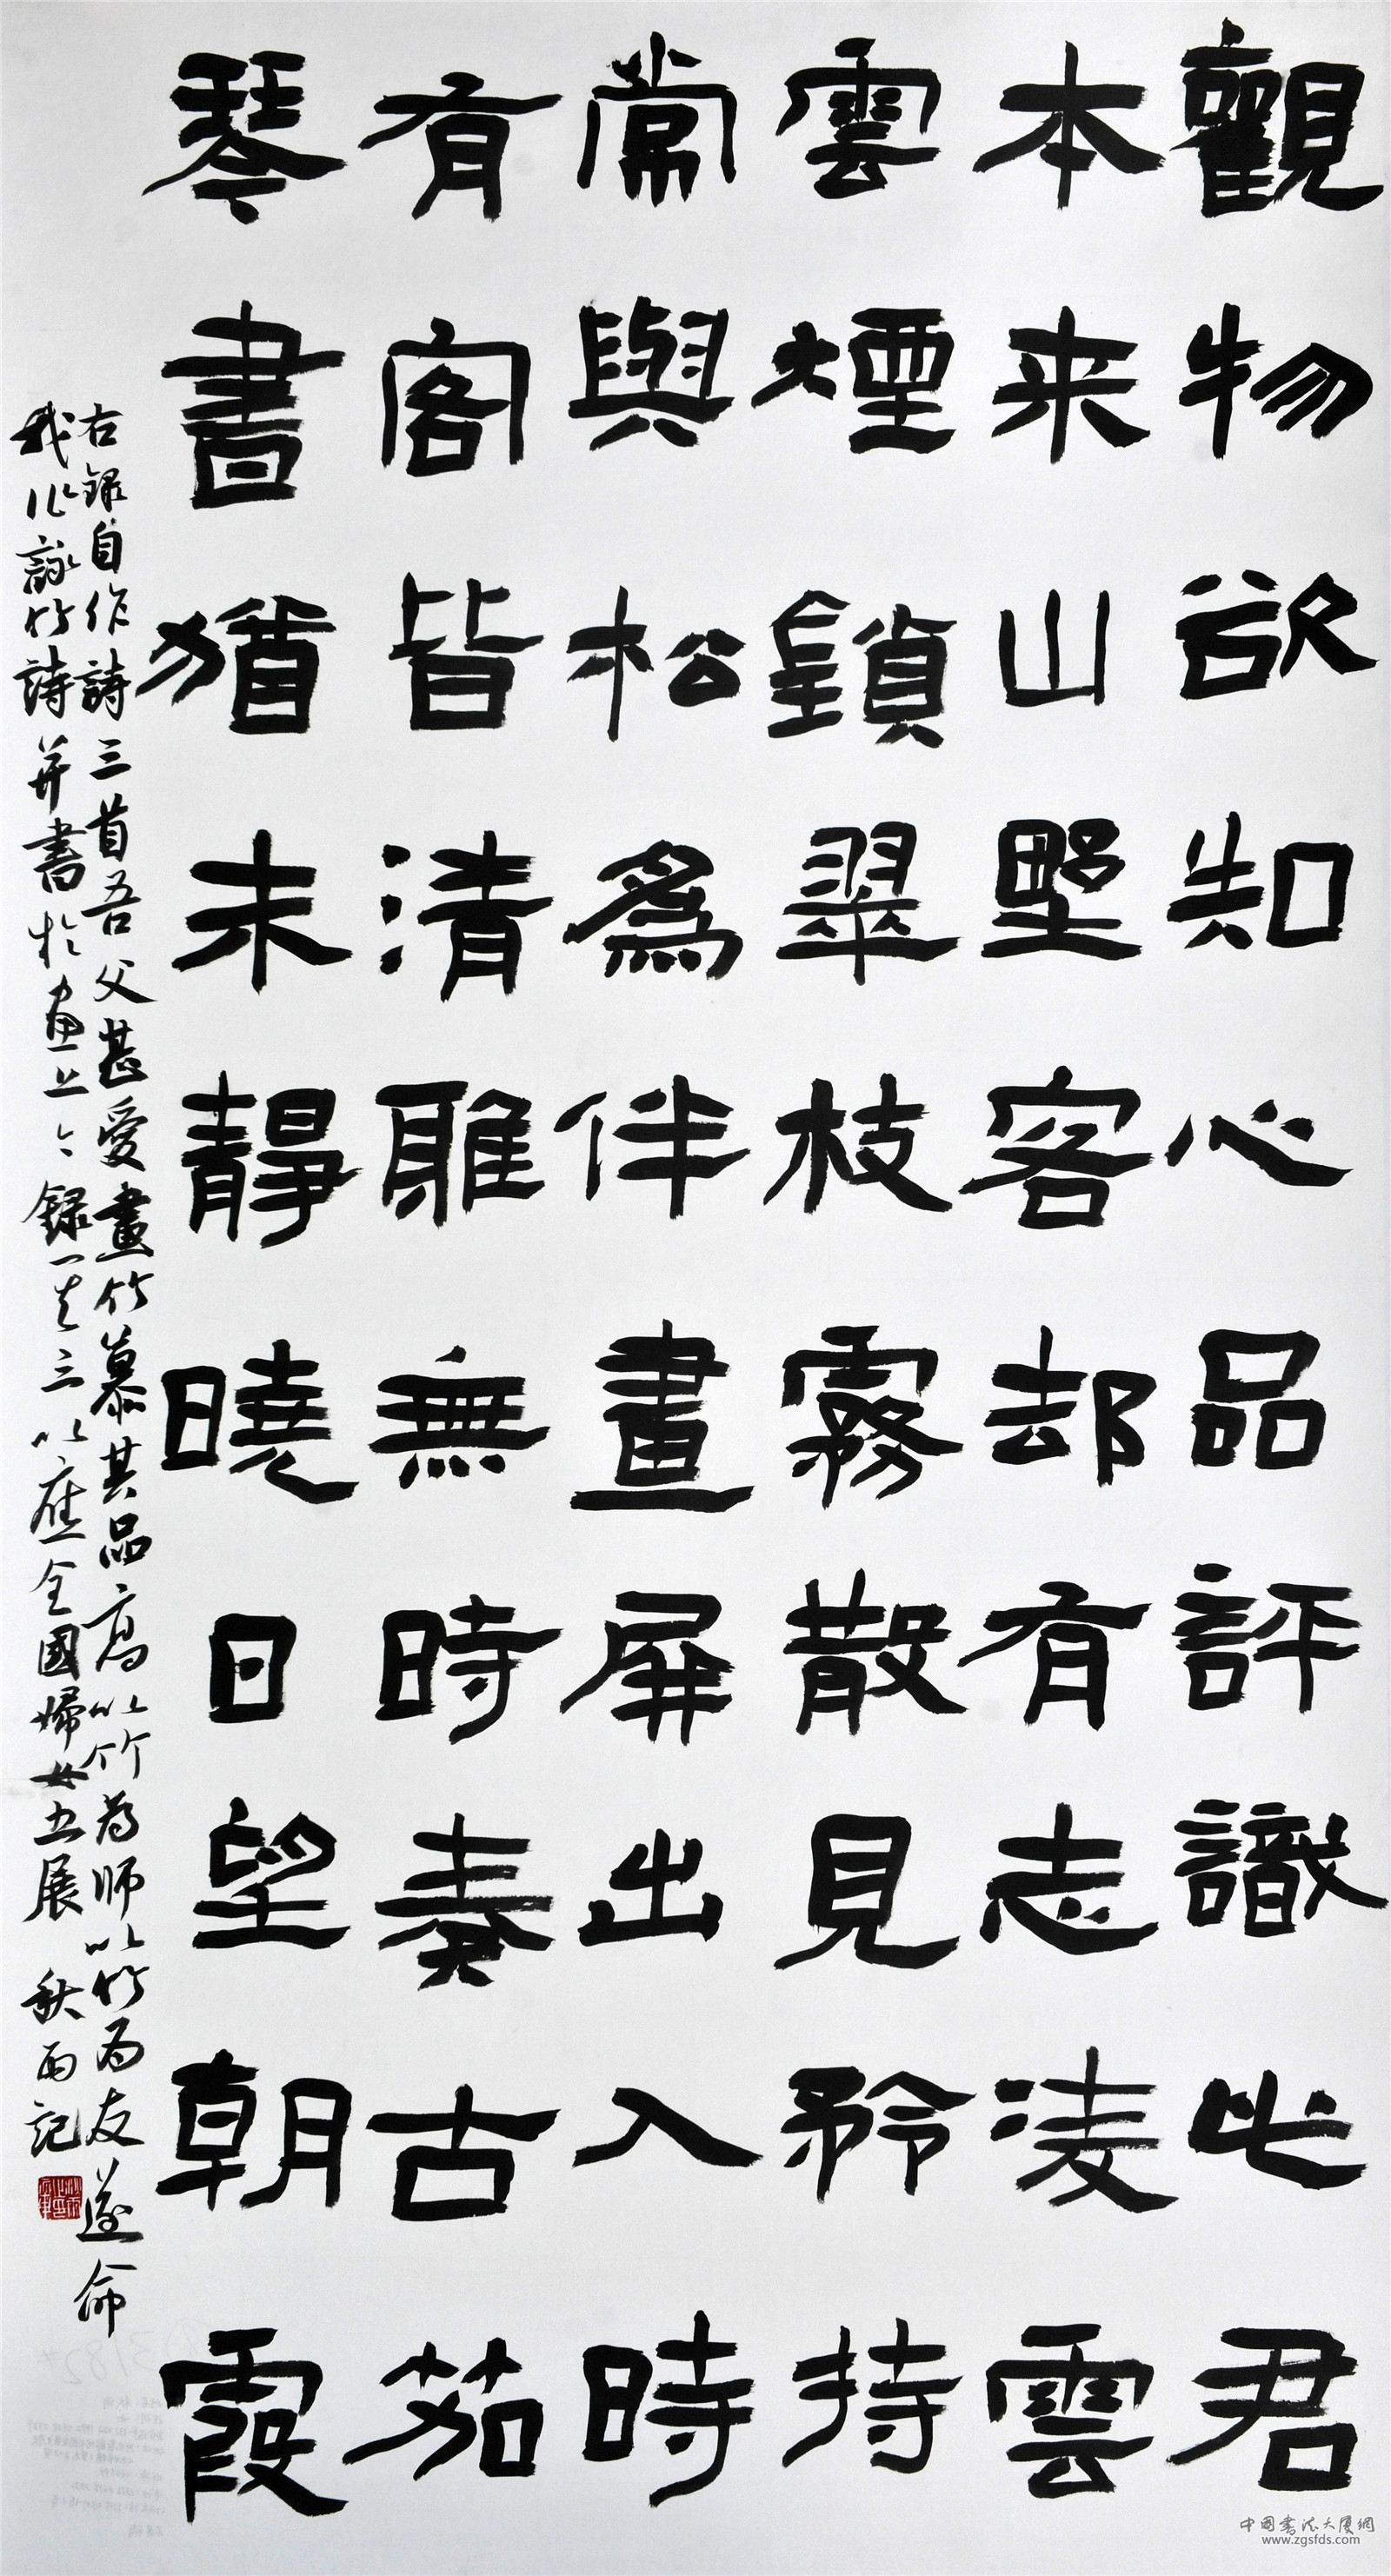 觀物欲知心品評識此君
本来山野客却有志凌雲
雲煙鎖翠枝霧散見矜持
常與松為伴畫屏出入時
有客皆清雅無時奏古笳
琴書猶未靜曉日望朝霞
右録自作詩三首吾父甚愛畫竹慕其品高以竹為師以竹為友遂命
我作詠竹詩并書於畫上今録其三以應全國婦女書展 秋雨記
中国书法大厦網
www.zgsfds.com